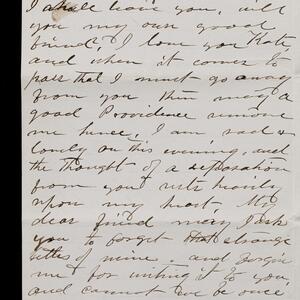 I shall leave you, will
you my own good
friend? I love you Kate,
and when it comes to
pass that I must go away
from you then may a
good Providence remove
me hence. I am sad &
lonely on this evening, and
the thought of a separation
from you rests heavily
upon my heart. My
dear friend may I ask
you to forget that strange
of mine, and forgive
me for writing it to you,
and cannot we be once